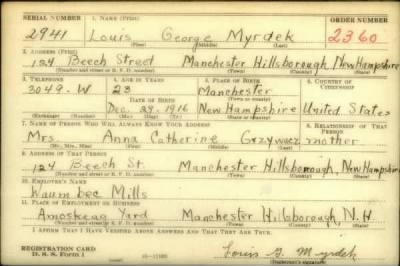 SERIAL NUMBER 1. NAME (Print) ORDER NUMBER
2941 Louis George Myrdek 2360
(First) (Middle) (Last)
2. ADDRESS (Print)
124 Beech Street Manchester Hillsborough, New Hampshire
(Number and street or R. F. D. number) (Town) (County) (State)
3. TELEPHONE 4. AGE IN YEARS 5. PLACE OF BIRTH 6. COUNTRY OF CITIZENSHIP
3049-W 23 Manchester
DATE OF BIRTH (Town or county)
Dec. 29, 1916 New Hampshire United States
(Mo.) (Day) (Yr.) (State or country)
7. NAME OF PERSON WHO WILL ALWAYS KNOW YOUR ADDRESS 8. RELATIONSHIP OF THAT PERSON
Mrs. Anna Catherine Grzywacz mother
(Mr., Mrs., Miss) (First) (Middle) (Last)
9. ADDRESS OF THAT PERSON
124 Beech St. Manchester Hillsborough, New Hampshire
(Number and street or R. F. D. number) (Town) (County) (State)
10. EMPLOYER'S NAME
Waumbec Mills
11. PLACE OF EMPLOYMENT OR BUSINESS
Amoskeag Yard Manchester Hillsborough, N. H.
(Number and street or R. F. D. number) (Town) (County) (State)
I AFFIRM THAT I HAVE VERIFIED ABOVE ANSWERS AND THAT THEY ARE TRUE.
REGISTRATION CARD
D. S. S. Form 1 Louis G. Myrdek
(Registrant's signature)